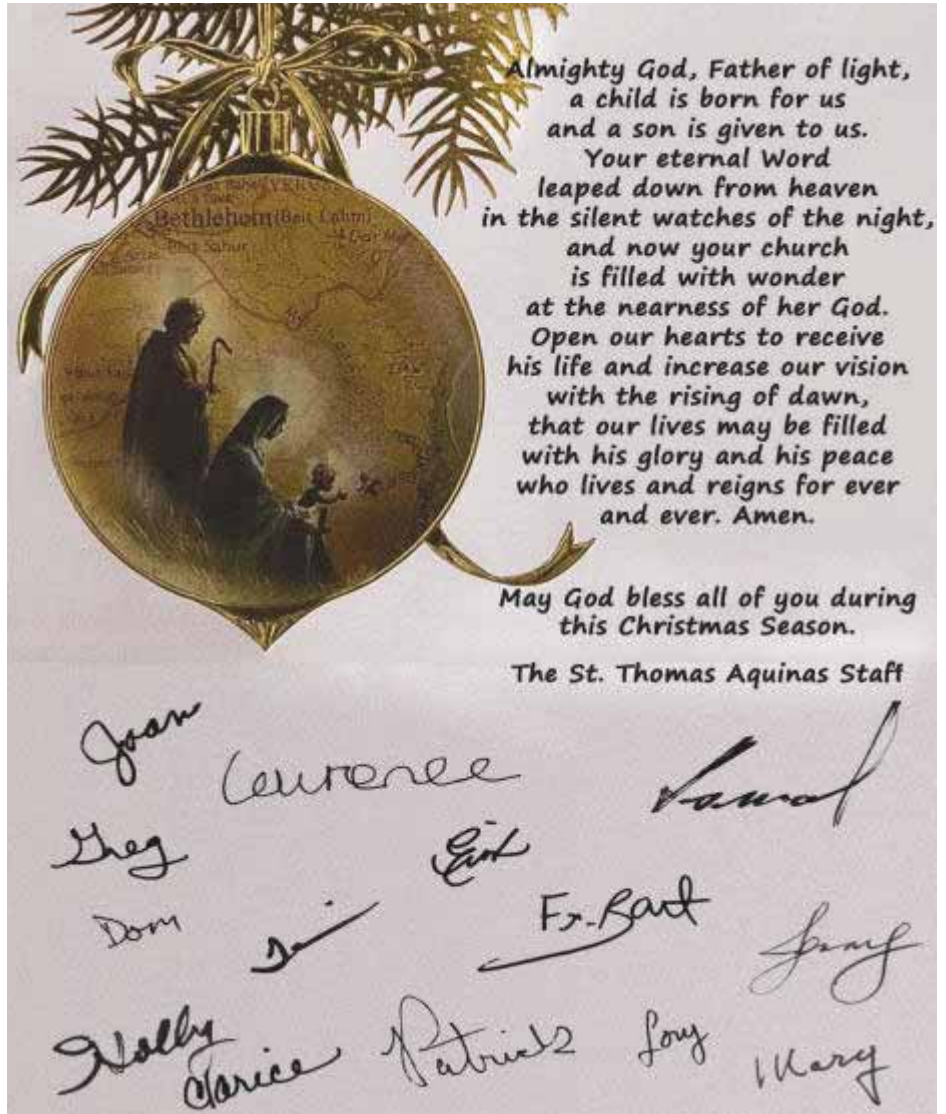 Almighty God, Father of light,
a child is born for us
and a son is given to us.
Your eternal Word
leaped down from heaven
in the silent watches of the night,
and now your church
is filled with wonder
at the nearness of her God.
Open our hearts to receive
his life and increase our vision
with the rising of dawn,
that our lives may be filled
with his glory and his peace
who lives and reigns for ever
and ever. Amen.
Bethlehem (Beit Lahm)
Beit Sahur
May God bless all of you during
this Christmas Season.
The St. Thomas Aquinas Staff
Joan
Laurence
Greg
Dom
Fr. Bart
Holly
Clarice
Patrick
Lory
Mary